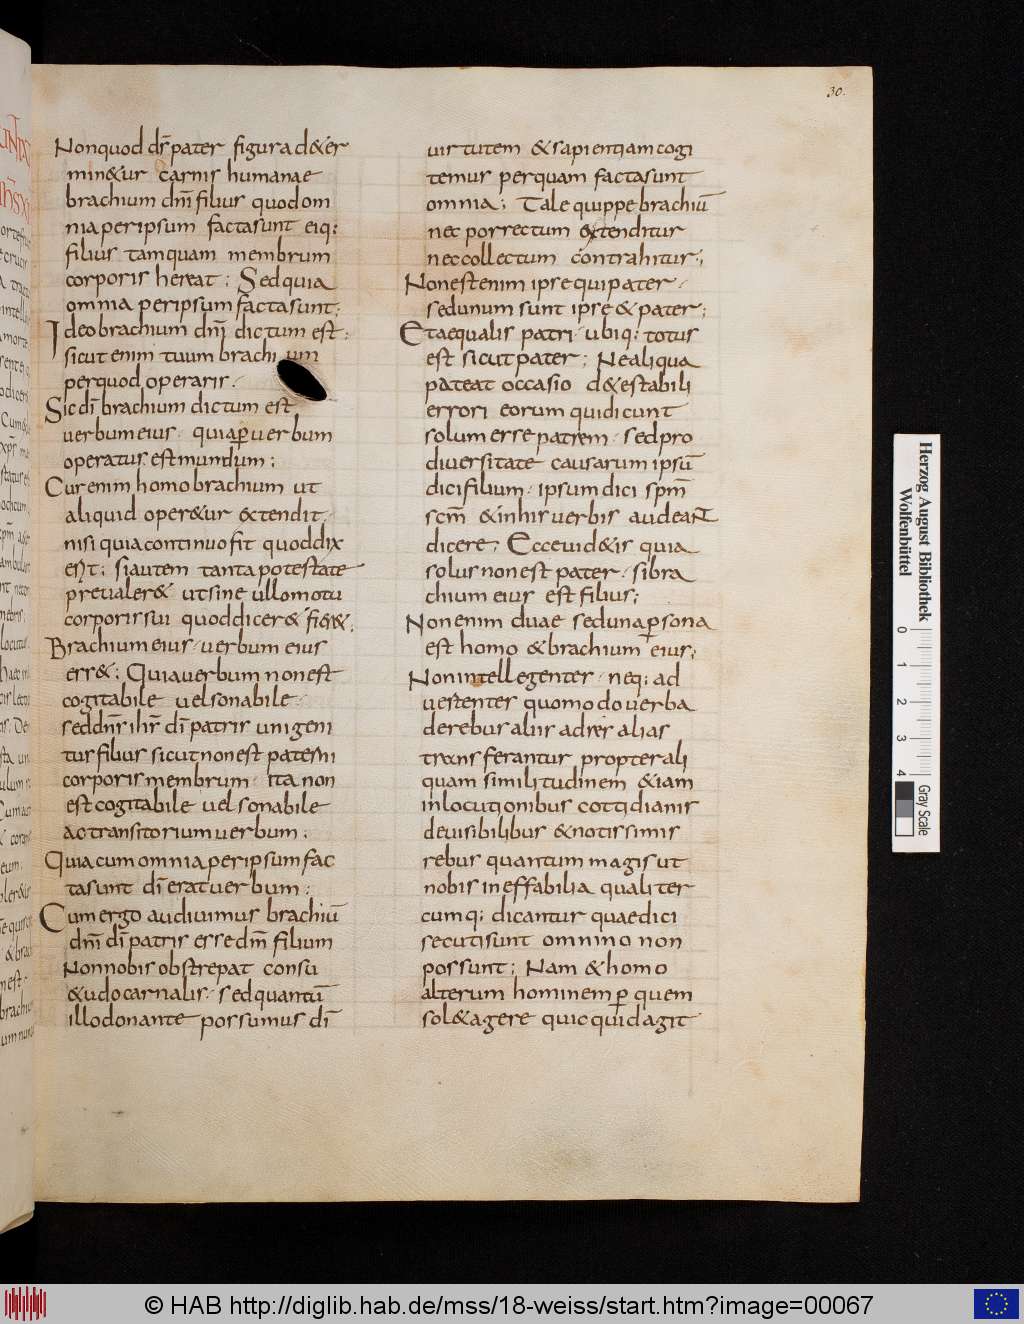 30.
Nonquod dr̄ pater figurad&er
min&ur carnis humanae
brachium dn̄i filius quodom
nia per ipsum facta sunt eiq;
filius tamquam membrum
corporis hereat; Sed quia
omnia per ipsum facta sunt;
Ideo brachium dn̄i dictum est;
sicut enim tuum brachi um
per quod operaris.
Sic dī brachium dictum est
uerbum eius. quia ꝑ uerbum
operatus est mundum;
Cur enim homo brachium ut
aliquid oper&ur &tendit.
nisi quia continuo fit quod dix
erit; si autem tanta potestate
preualer& ut sine ullo motu
corporis sui quod dicer& fier&;
Brachium eius. uerbum eius
ess&; Quia uerbum non est
cogitabile uel sonabile.
sed dn̄r ihr̄ dī patris unigeni
tus filius sicut non est paterni
corporis membrum. Ita non
est cogitabile uel sonabile
ac transitorium uerbum;
Quia cum omnia per ipsum fac
ta sunt dī erat uerbum;
Cum ergo audiuimus brachiū
dn̄i dī patris esse dm̄ filium
Non nobis obstrepat consu
&udo carnalis. sed quantū
illo donante possumus dī
uirtutem & sapientiam cogi
temus per quam facta sunt
omnia; Tale quippe brachiū
nec porrectum extenditur
nec collectum contrahitur;
Non est enim ipse qui pater.
sed unum sunt ipse & pater;
Et aequalis patri. ubiq; totus
est sicut pater; Ne aliqua
pateat occasio d&estabili
errori eorum qui dicunt
solum esse patrem. sed pro
diuersitate causarum ipsū
dici filium. ipsum dici spm̄
scm̄ & in his uerbis audeant
dicere; Ecce uid&is quia
solus non est pater. si bra
chium eius est filius;
Non enim duae sed una ꝑsona
est homo & brachium eius;
Non intellegenter. neq; ad
uertenter quomodo uerba
de rebus aliis ad res alias
transferantur propter ali
quam similitudinem & iam
in locutionibus cottidianis
de uisibilibus & notissimis
rebus quantum magis ut
nobis ineffabilia qualiter
cumq; dicantur quae dici
secuti sunt omnino non
possunt; Nam & homo
alterum hominem ꝑ quem
sol& agere quicquid agit
Herzog August Bibliothek
Wolfenbüttel
0 1 2 3 4
Gray Scale
© HAB http://diglib.hab.de/mss/18-weiss/start.htm?image=00067